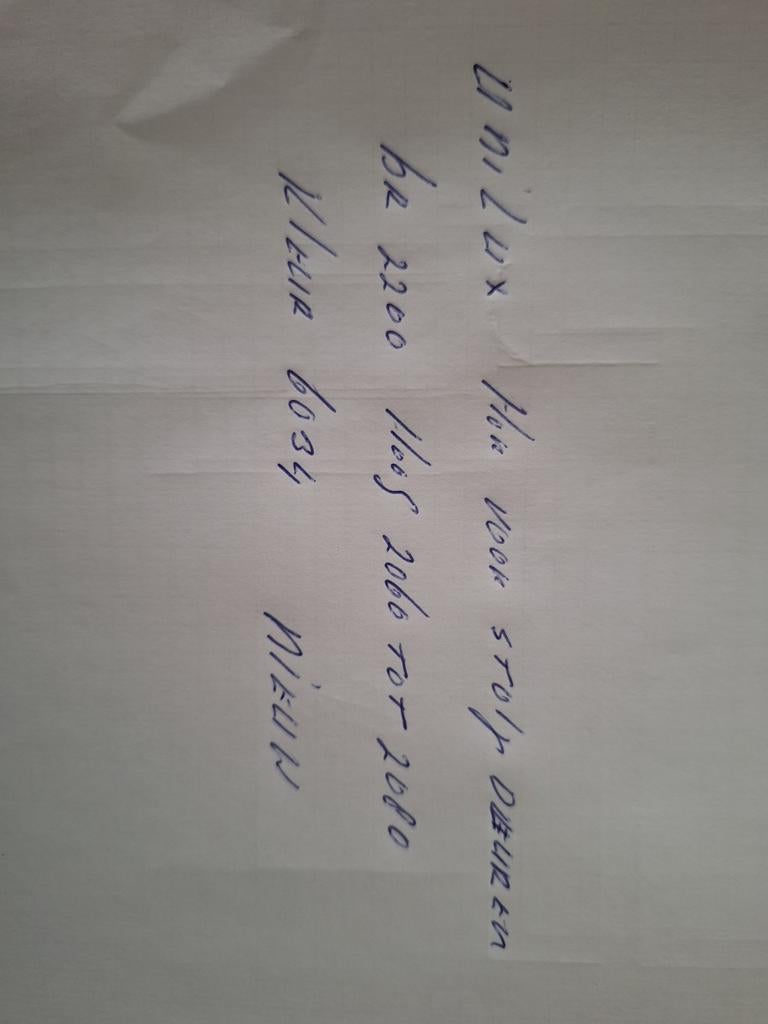 UniLux Hor voor stolp deuren
br 2200 Hoog 2060 tot 2080
Kleur 6034 Nieuw